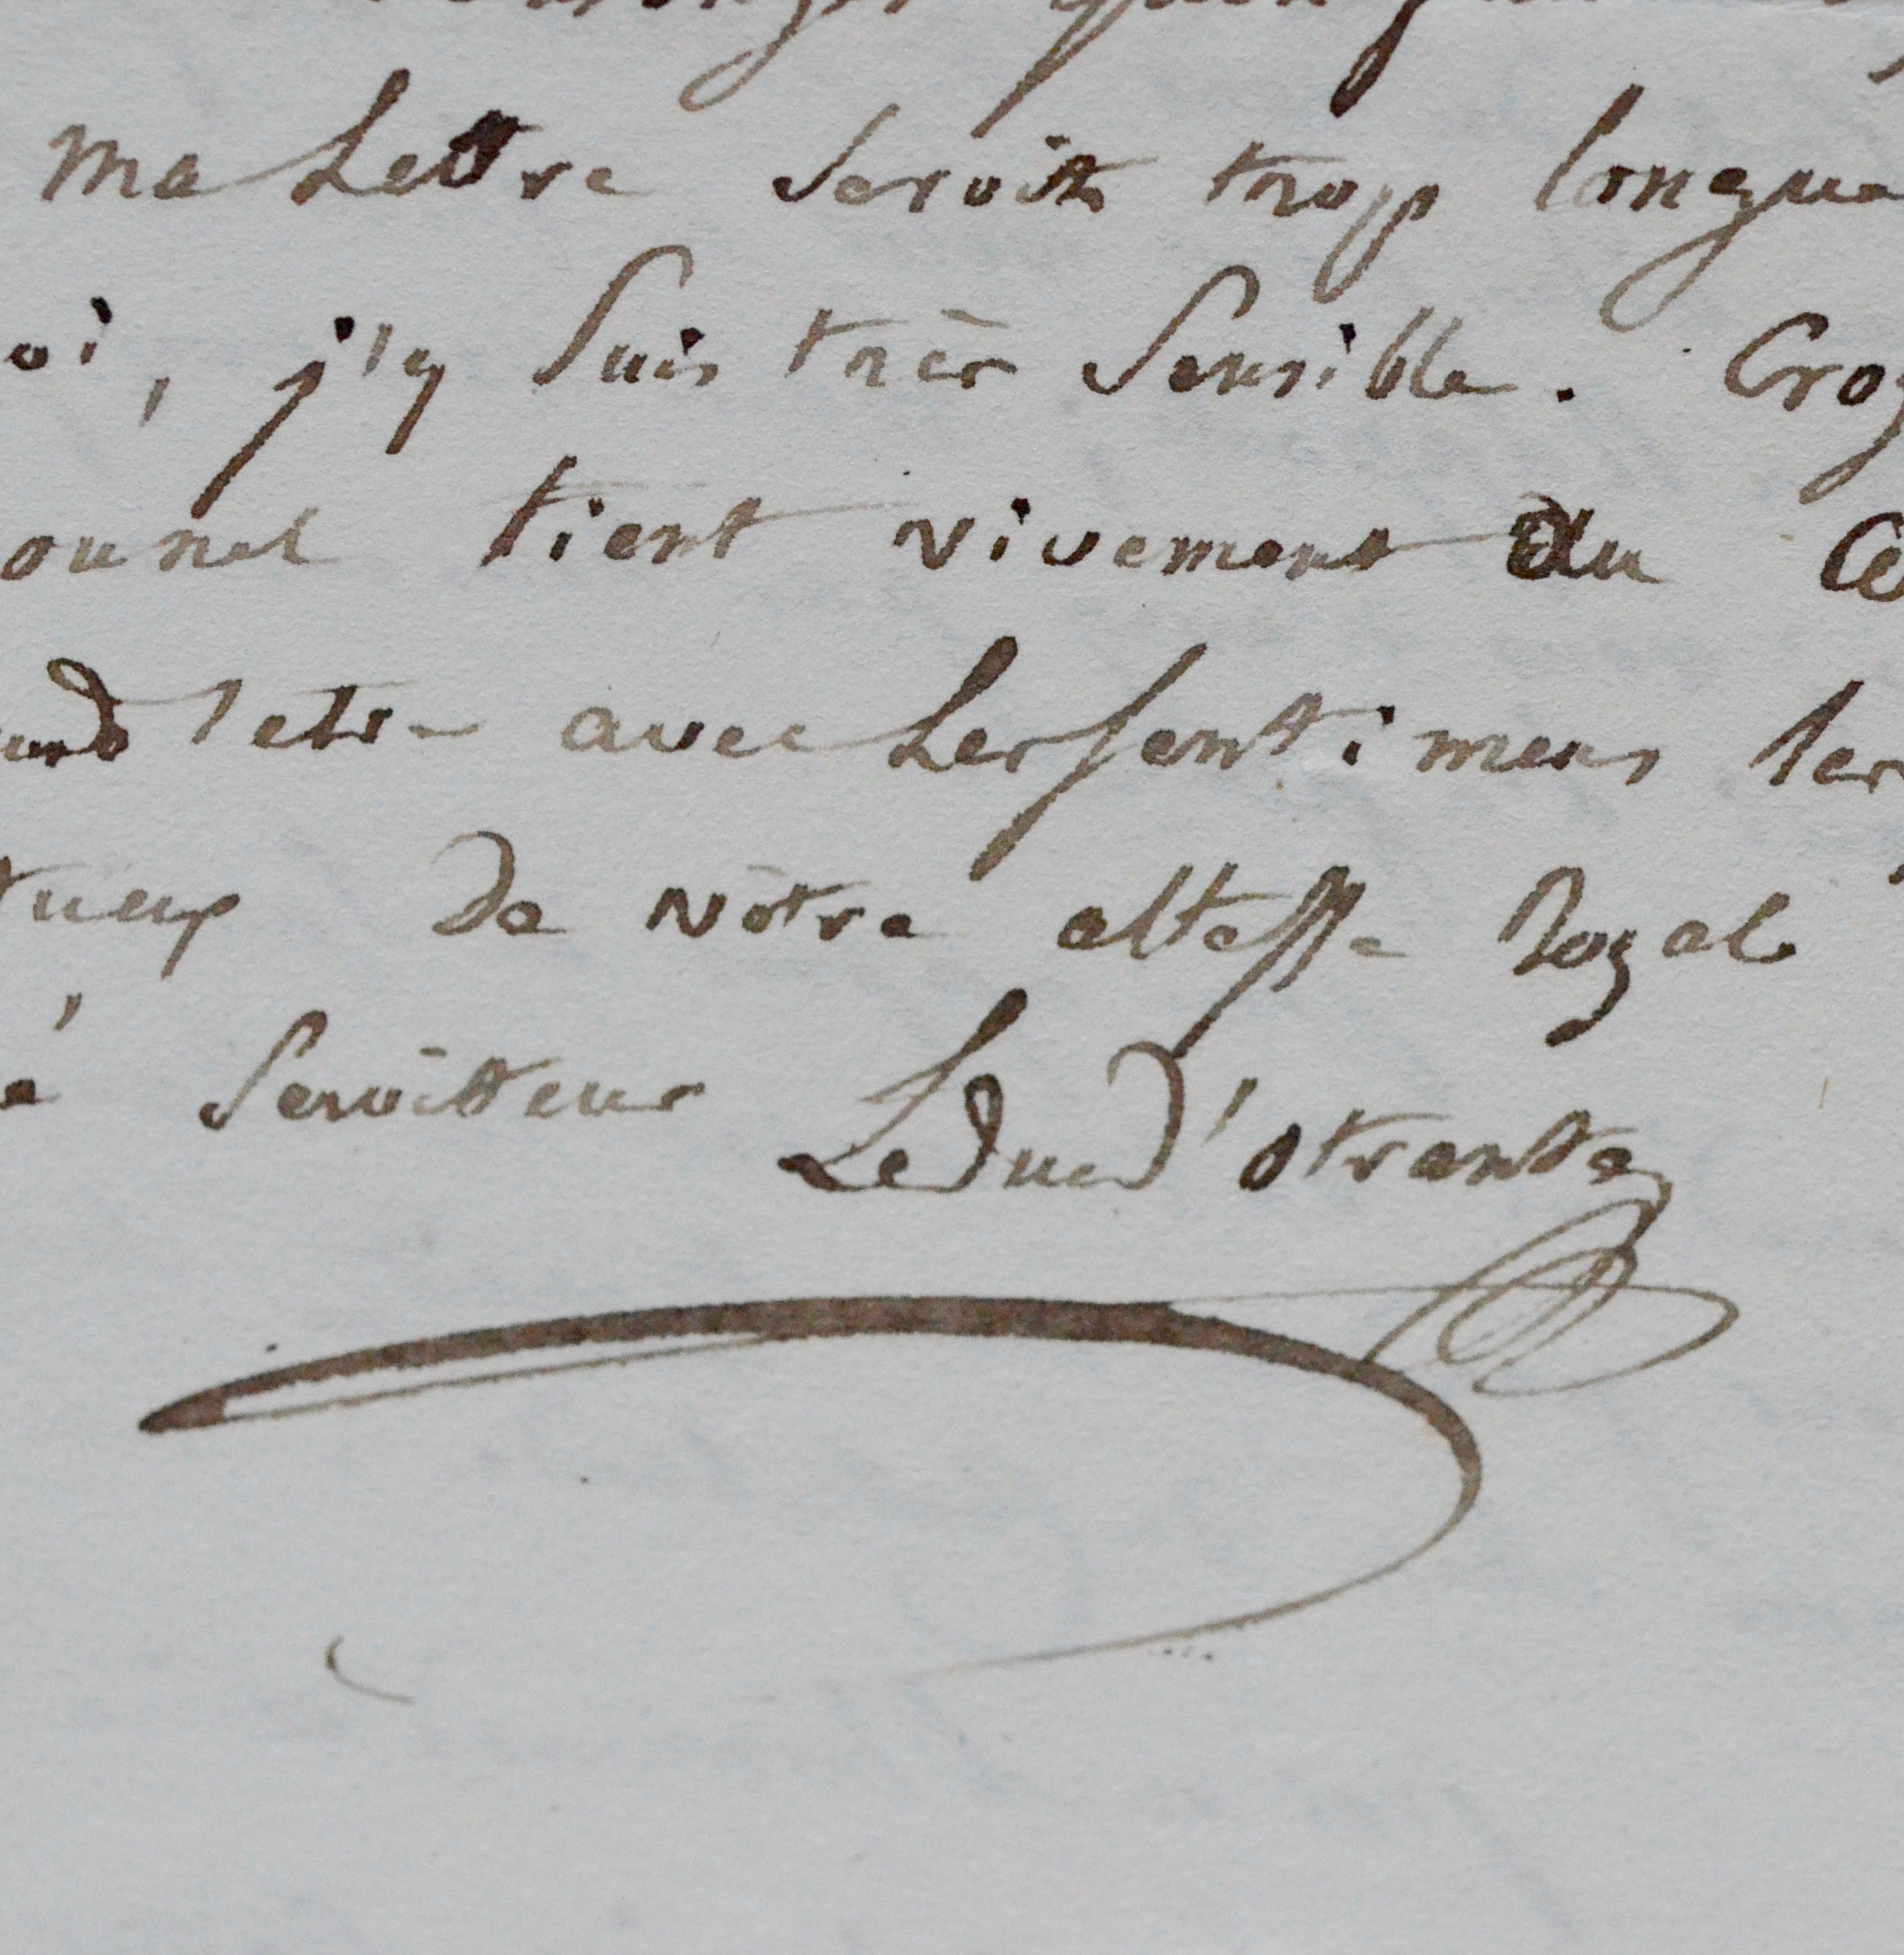 ma Lettre seroit trop longue
oi, j'y suis très sensible. Croy
onnel tient vivement du
lettre avec les sentimens les
tueux de vôtre altesse Royale
é Serviteur Le Duc D'otrante